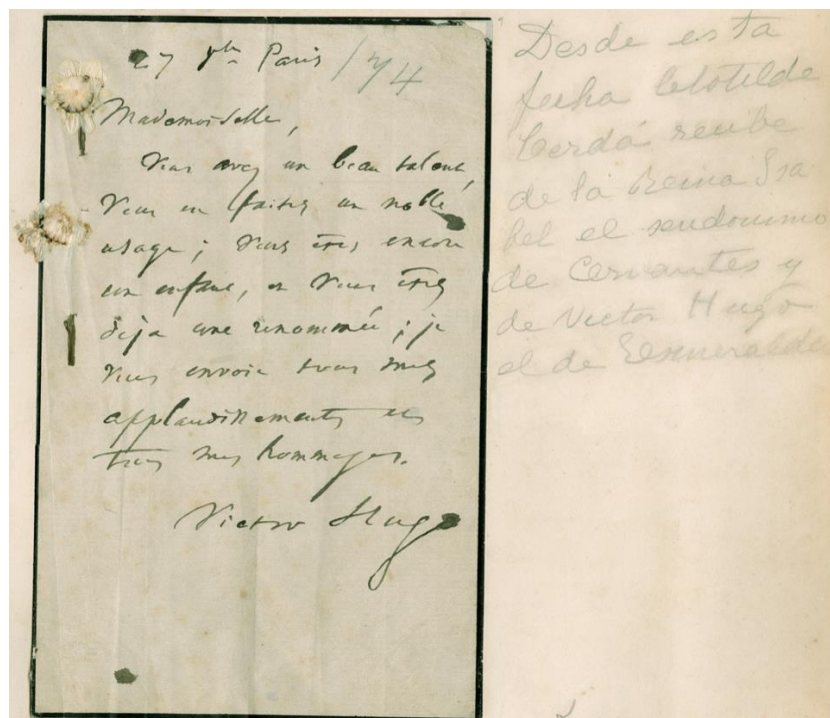 27 9bre Paris /74
Mademoiselle,
Vous avez un beau talent,
Vous en faites un noble
usage ; Vous êtes encore
un enfant, et Vous êtes
déjà une renommée ; je
Vous envoie tous mes
applaudissements et
tous mes hommages.
Victor Hugo
Desde esta
fecha Clotilde
Cerdá recibe
de la Reina Isa
bel el seudonimo
de Cervantes y
de Victor Hugo
el de Esmeralda